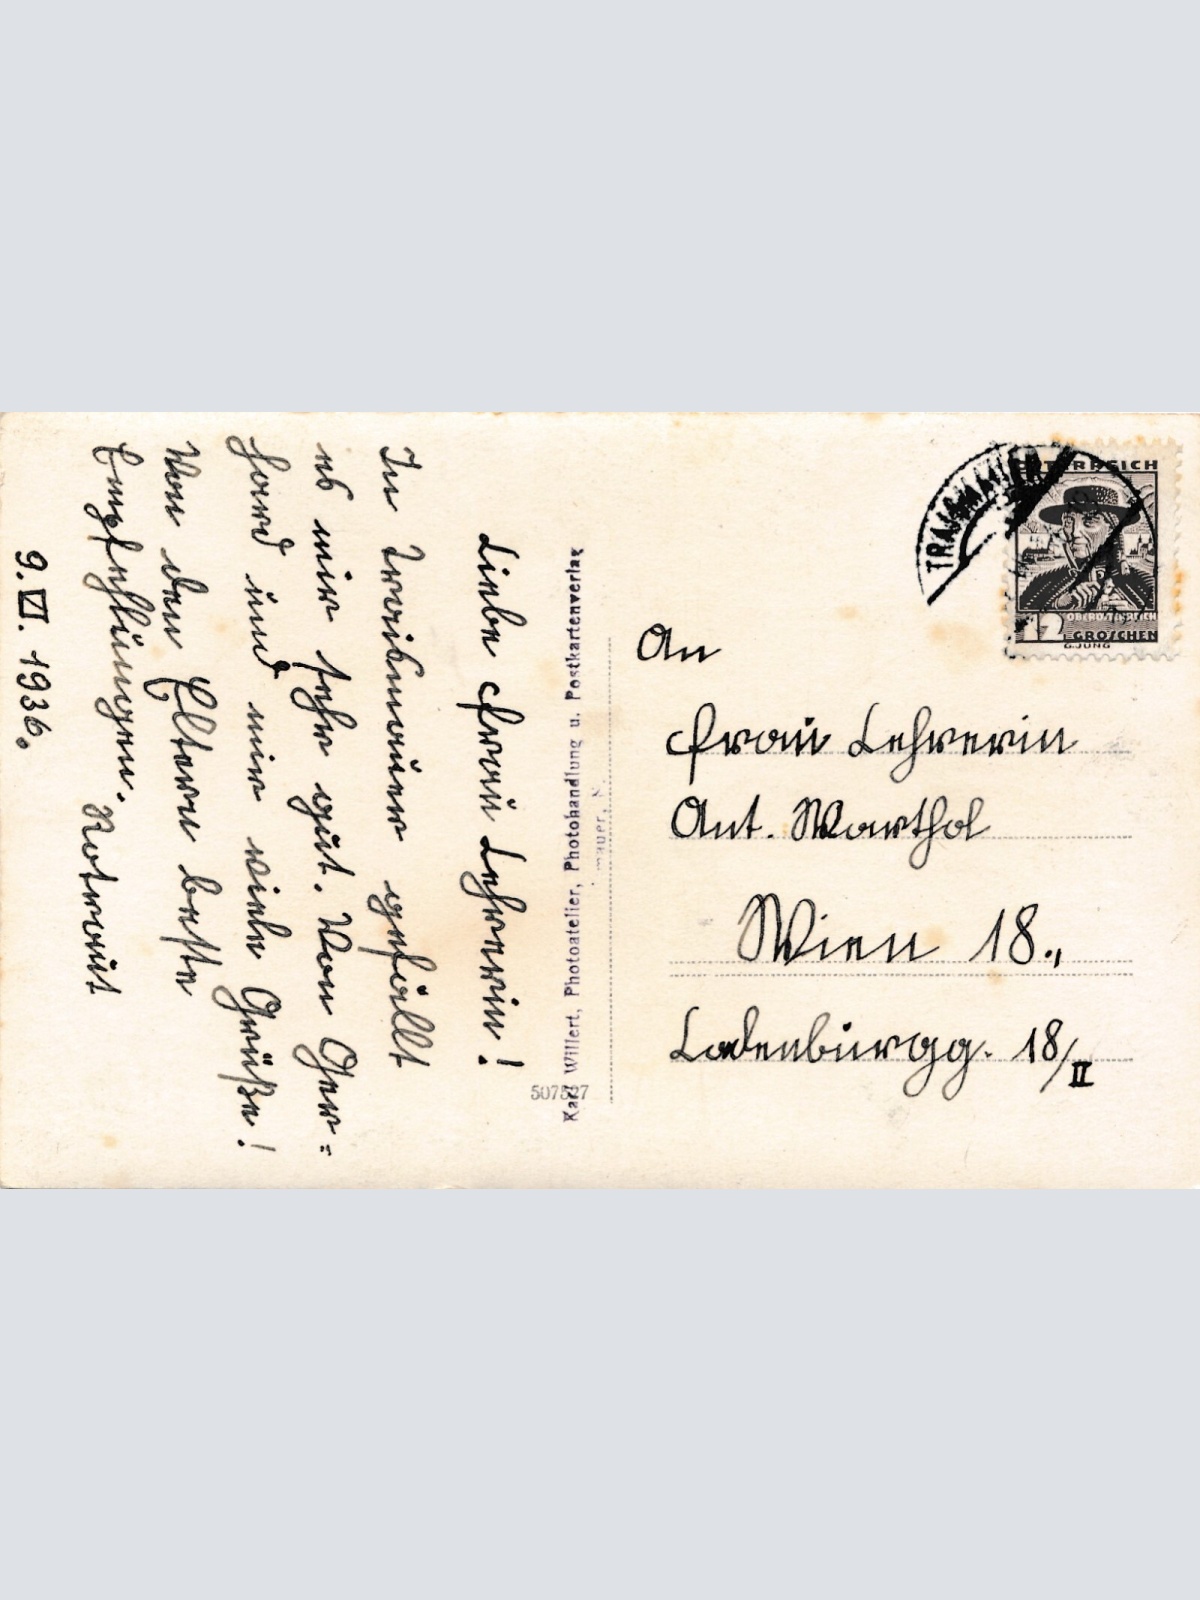 Liebe Frau Lehrerin!
In Traismauer gefällt
es mir sehr gut. Von Ger=
hard und mir viele Grüße!
Von den Eltern beste
Empfehlungen. Rotraut
9. VI. 1936.
Karl Willert, Photoatelier, Photohandlung u. Postkartenverlag
507527
TRAISMAUER
ÖSTERREICH
OBERÖSTERREICH
12 GROSCHEN
G.JUNG
An
Frau Lehrerin
Ant. Warthol
Wien 18.,
Ladenburgg. 18/II